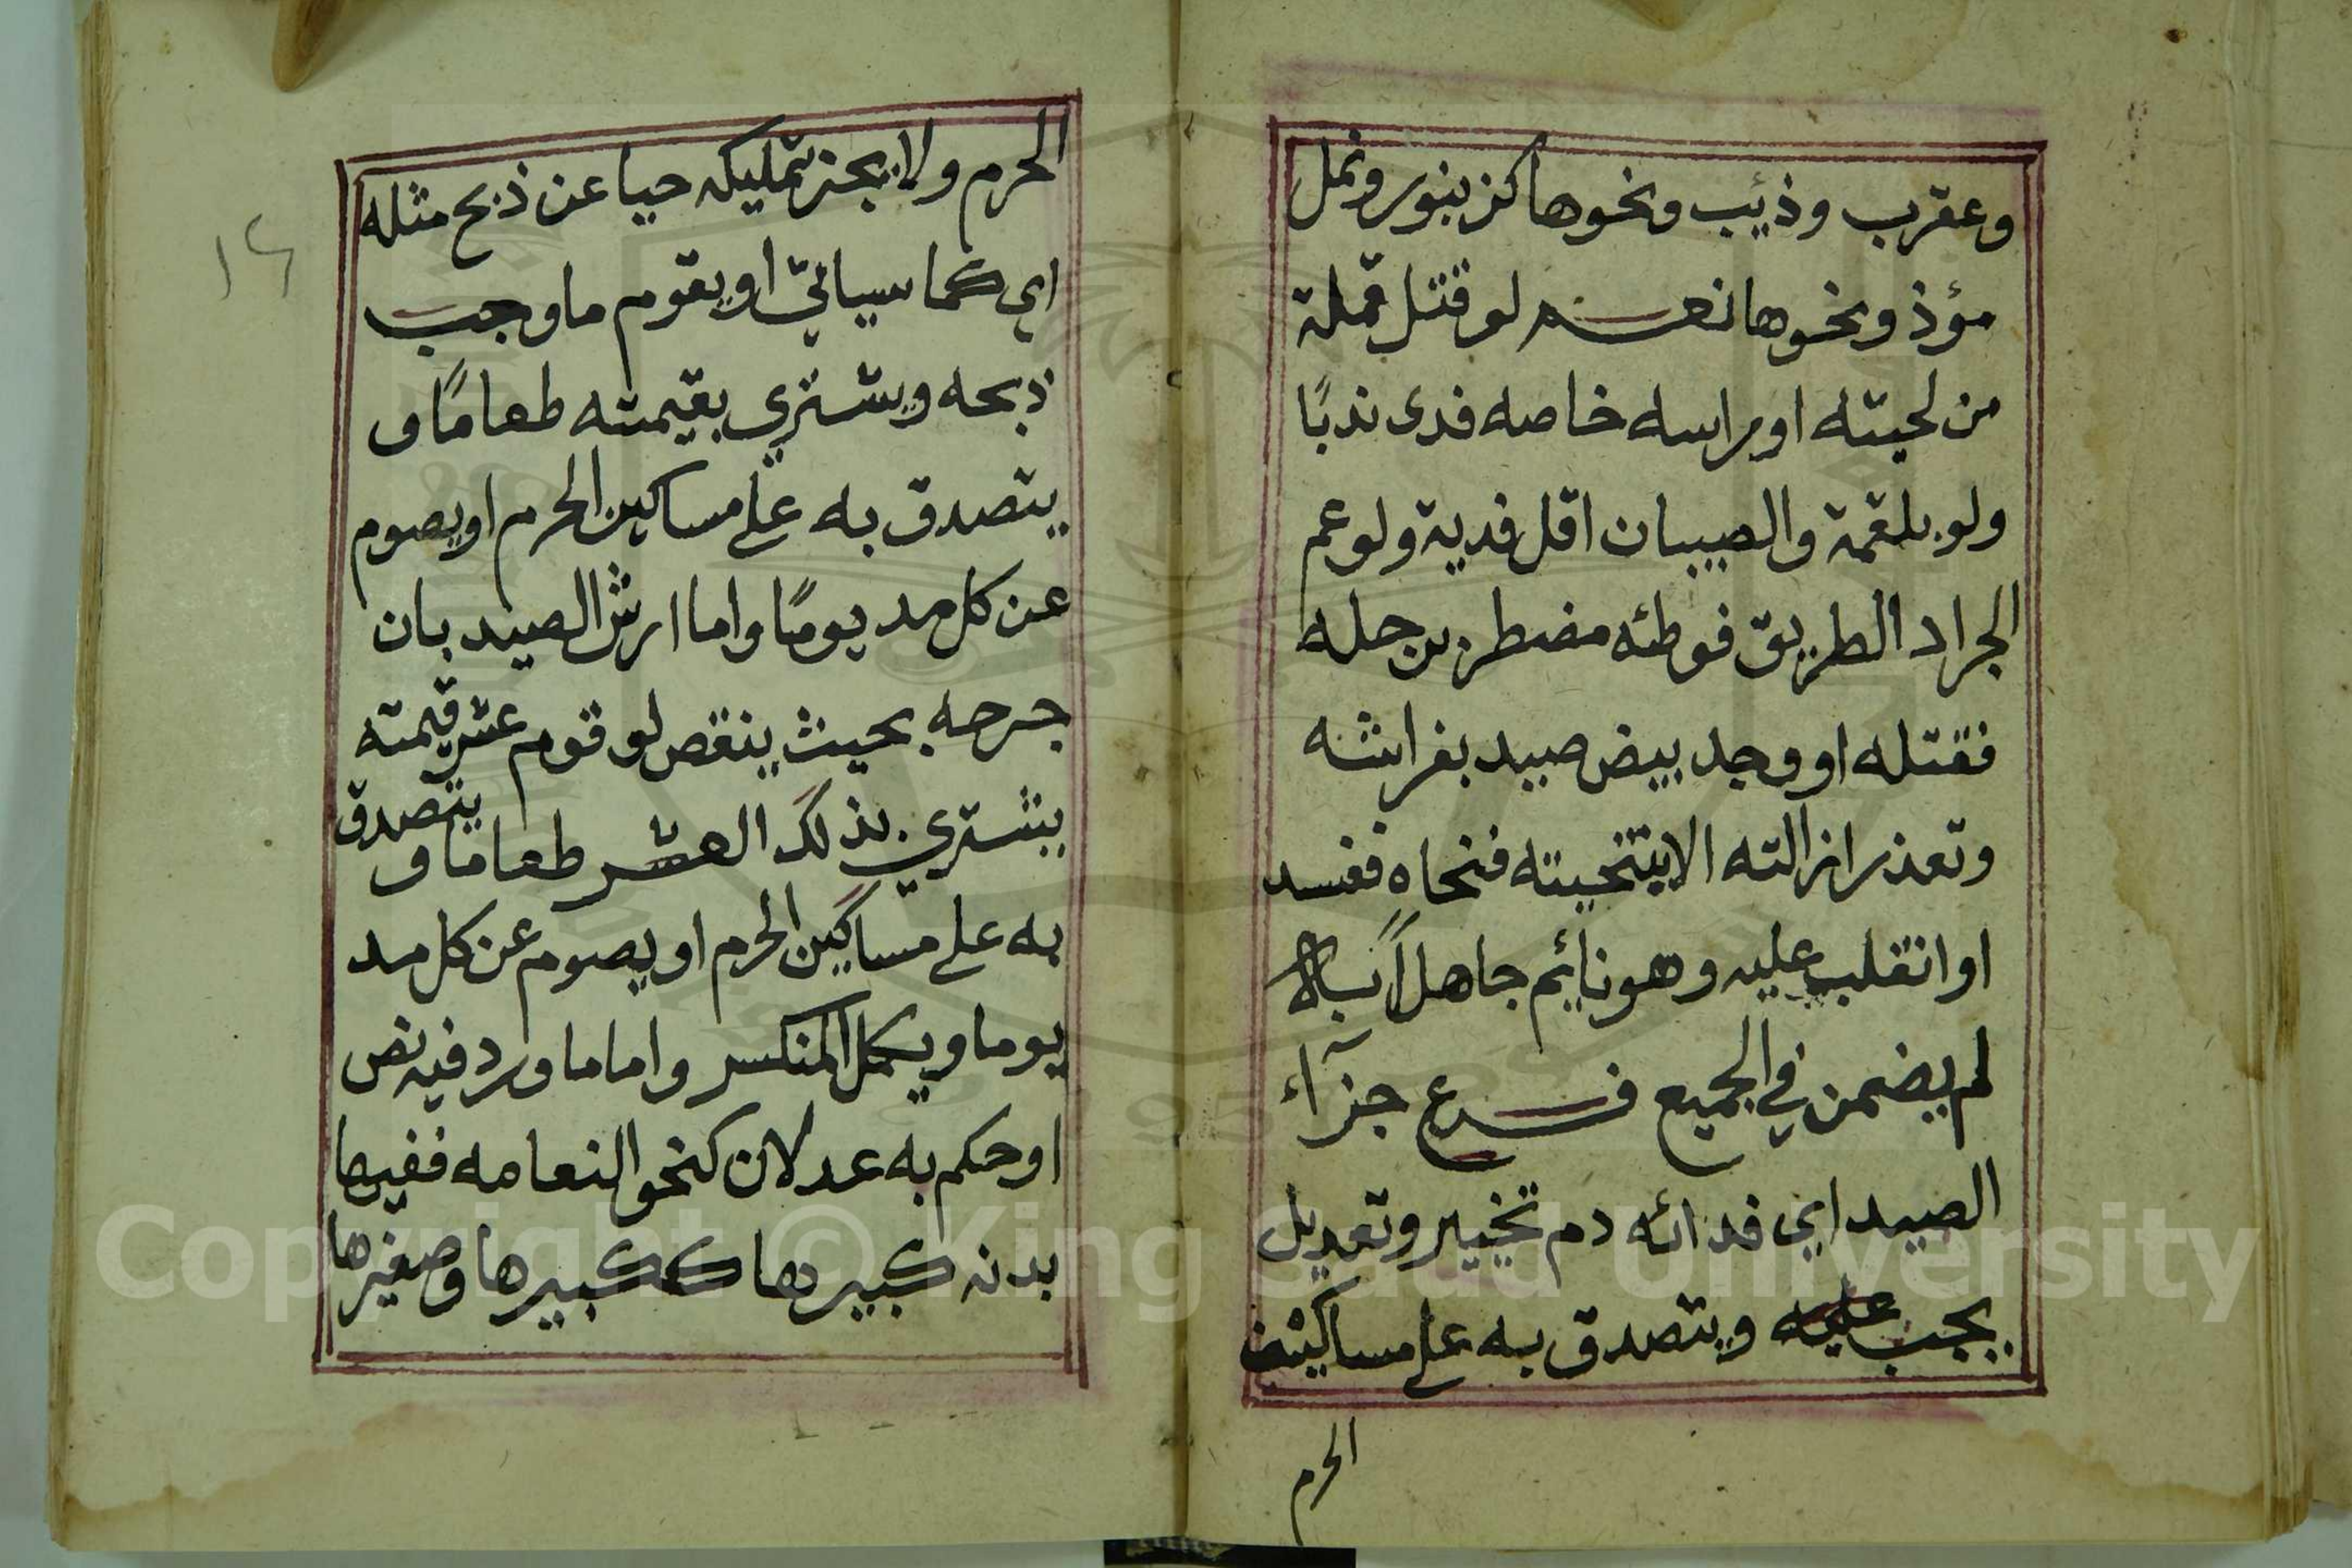 وعقرب وذئب ونحوها كزنبور ونمل
مؤذ ونحوها نعم لو قتل قملة
من لحيته او راسه خاصه فدى ندبًا
ولو بلقمة والصيبان اقل فدية ولو عم
الجراد الطريق فوطئه مضطر برجله
فقتله او وجد بيض صيد بفراشه
وتعذر ازالته الا بتنحيته فنحاه ففسد
او انقلب عليه وهو نائم جاهلًا به
لم يضمن في الجميع فرع جزآء
الصيد اي فدائه دم تخيير وتعديل
يجب عليه ويتصدق به على مساكين
الحرم
الحرم ولا يجز تمليكه حيا عن ذبح مثله
اي كما سياتي او يقوم ما وجب
ذبحه ويشتري بقيمته طعامًا و
يتصدق به على مساكين الحرم او يصوم
عن كل مد يومًا واما ارش الصيد بان
جرحه بحيث ينقص لو قوم عشر قيمته
يشتري بذلك العشر طعاما و يتصدق
به على مساكين الحرم او يصوم عن كل مد
يوما ويكمل المنكسر واما ما ورد فيه نص
او حكم به عدلان كنحو النعامه ففيها
بدنه كبيرها ككبيرها وصغيرها
١٢
Copyright © King Saud University